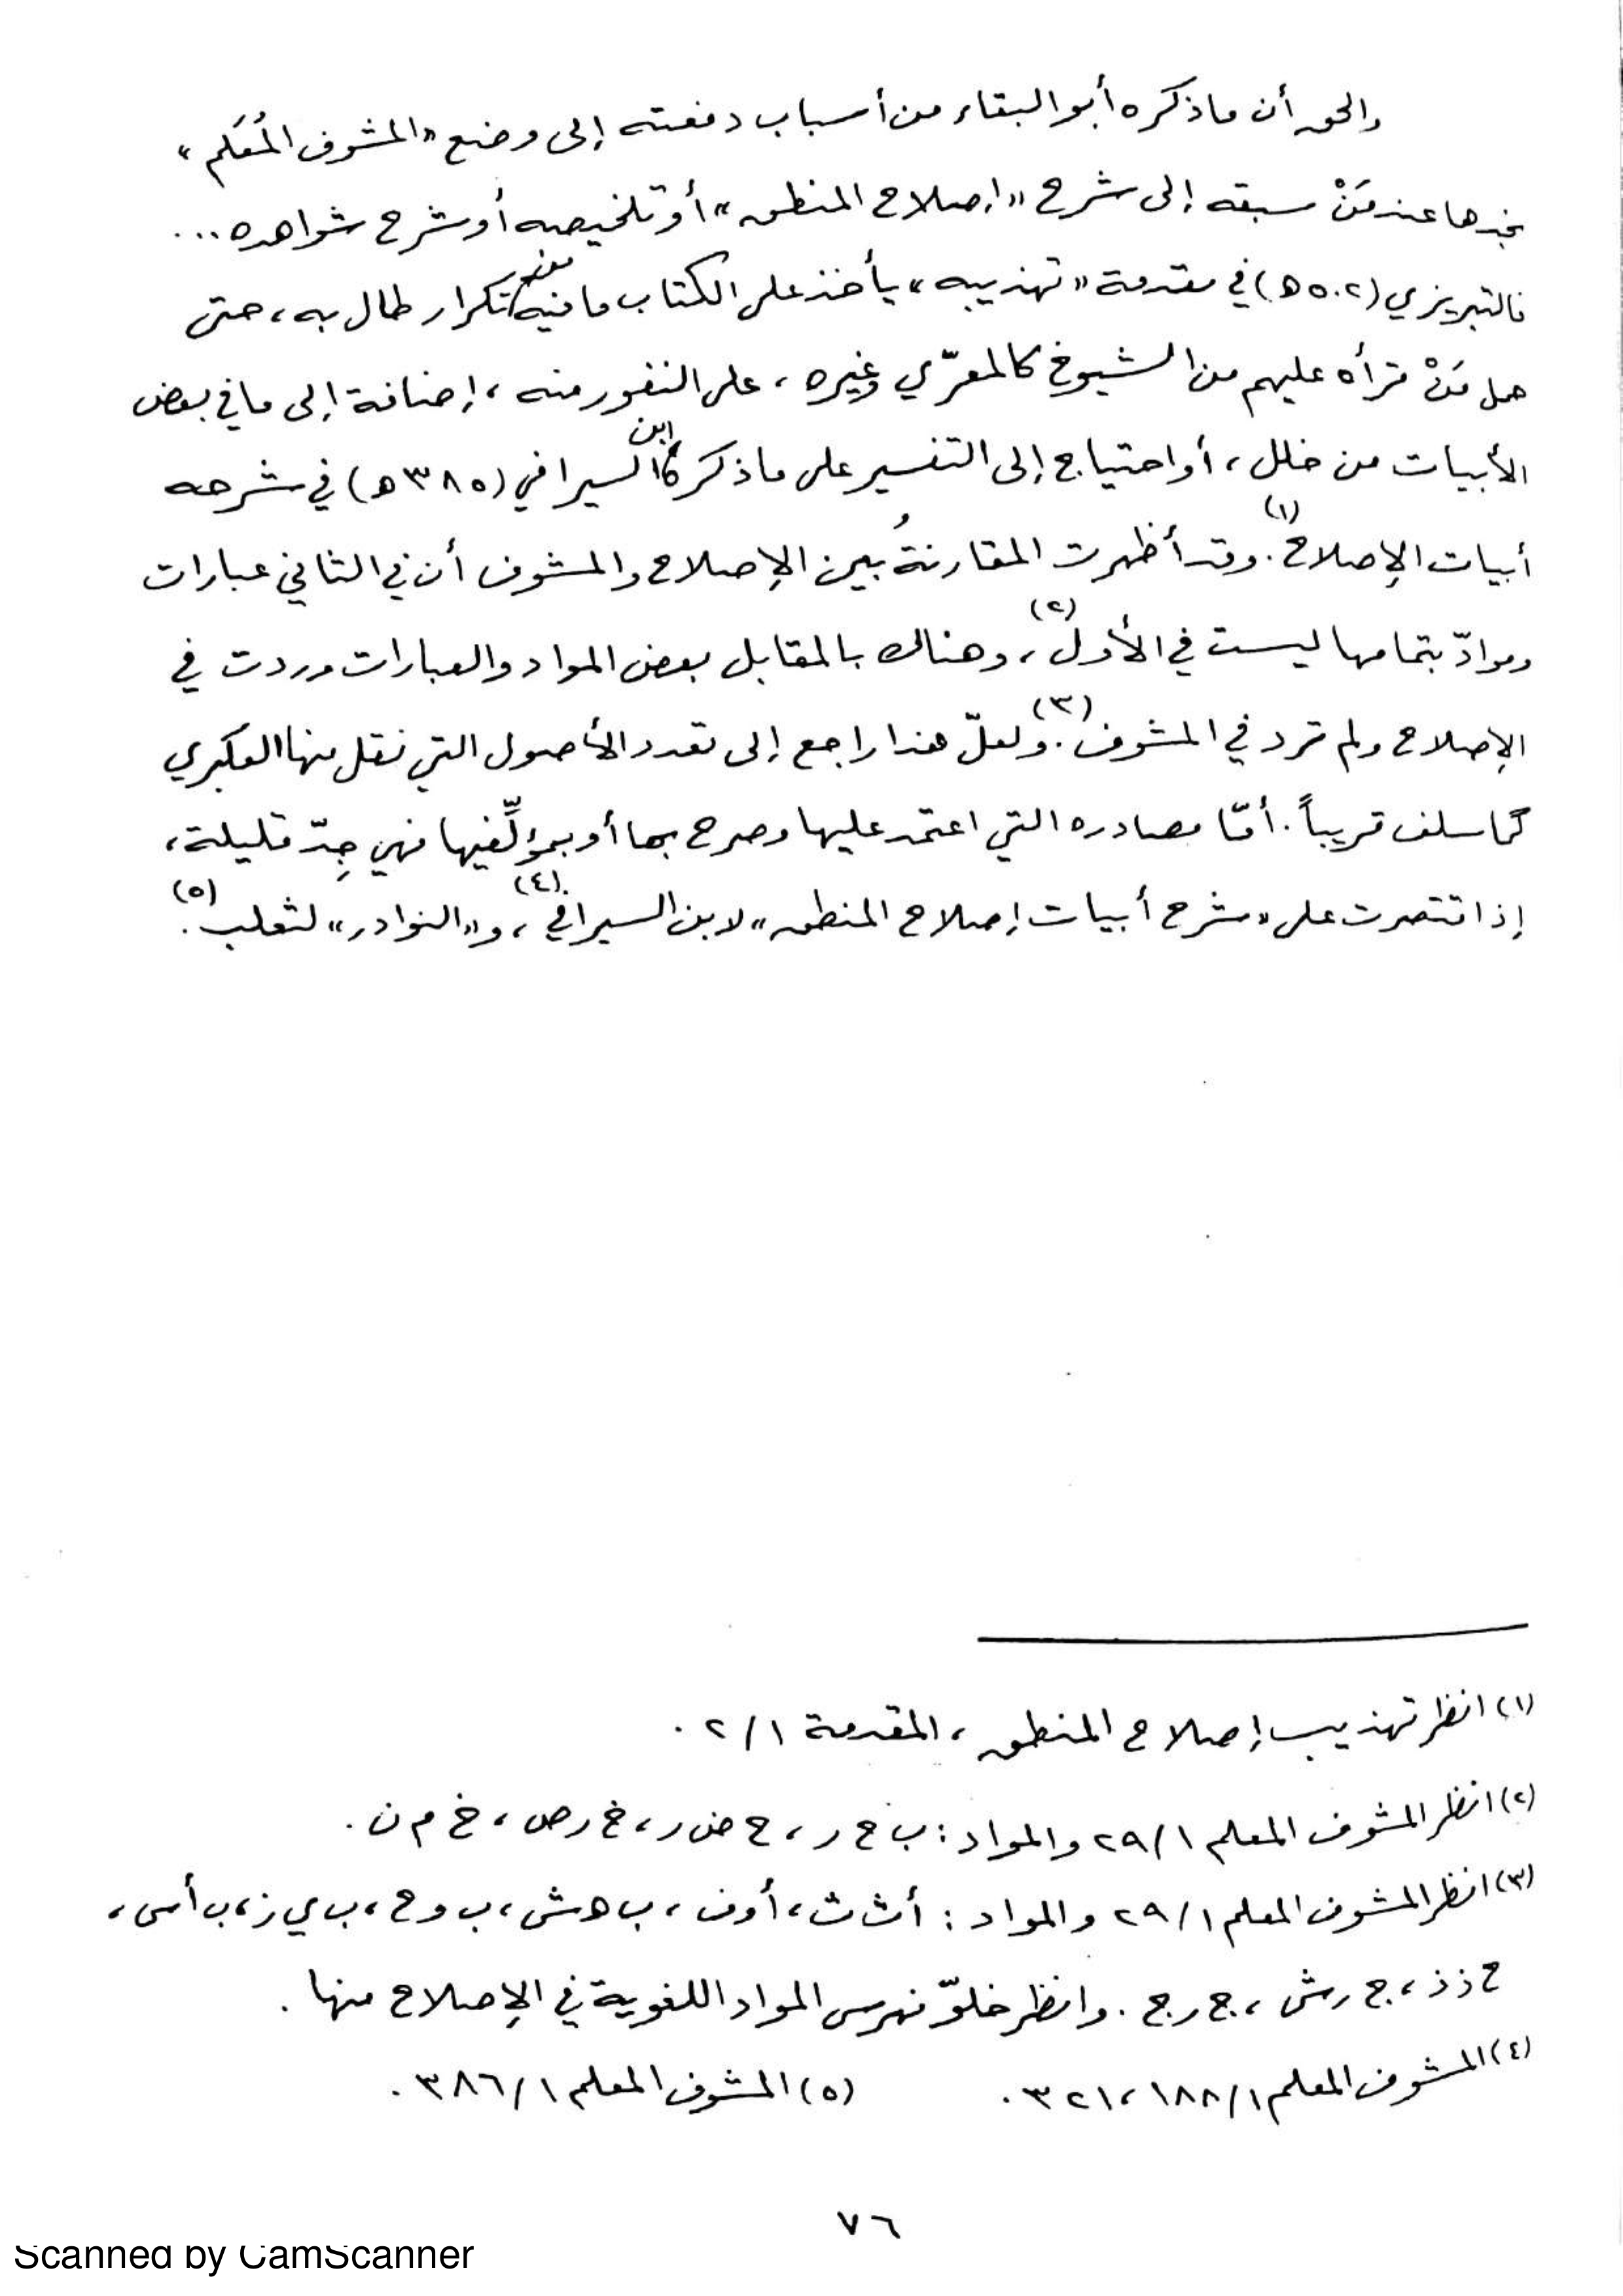 والحق أن ما ذكره أبو البقاء من أسباب دفعته إلى وضع «المشوف المُعَلم»
نجدها عند مَنْ سبقه إلى شرح «إصلاح المنطق» أو تلخيصه أو شرح شواهده ...
فالتبريزي (٥٠٢ هـ) في مقدمة «تهذيبه» يأخذ على الكتاب ما فيه من تكرار طال به، حتى
حمل مَنْ قرأه عليهم من الشيوخ كالمعرّي وغيره، على النفور منه، إضافة إلى ما في بعض
الأبيات من خلل، أو احتياج إلى التفسير على ما ذكر ابن السيرافي (٣٨٥ هـ) في شرحه
أبيات الإصلاح (١). وقد أظهرت المقارنةُ بين الإصلاح والمشوف أن في الثاني عبارات
وموادّ بتمامها ليست في الأول (٢)، وهناك بالمقابل بعض المواد والعبارات وردت في
الإصلاح ولم ترد في المشوف (٣). ولعلّ هذا راجع إلى تعدد الأصول التي نقل منها العكبري
كما سلف قريباً. أمّا مصادره التي اعتمد عليها وصرح بها أو بمؤلِّفيها فهي جِدّ قليلة،
إذ اقتصرت على «شرح أبيات إصلاح المنطق» لابن السيرافي (٤)، و«النوادر» لثعلب (٥).
(١) انظر تهذيب إصلاح المنطق، المقدمة ٢/١.
(٢) انظر المشوف المعلم ٢٩/١ والمواد: ب ح ر، ح ض ر، خ ر ص، خ م ن.
(٣) انظر المشوف المعلم ٢٩/١ والمواد: أ ث ث، أ و ف، ب هـ ش، ب و ح، ب ي ز، ب أ س،
ح ذ ذ، ج ر ش، ج ر ج. وانظر خلوّ فهرس المواد اللغوية في الإصلاح منها.
(٤) المشوف المعلم ١٨٨/١، ٣٢١.
(٥) المشوف المعلم ٣٨٦/١.
٧٦
Scanned by CamScanner